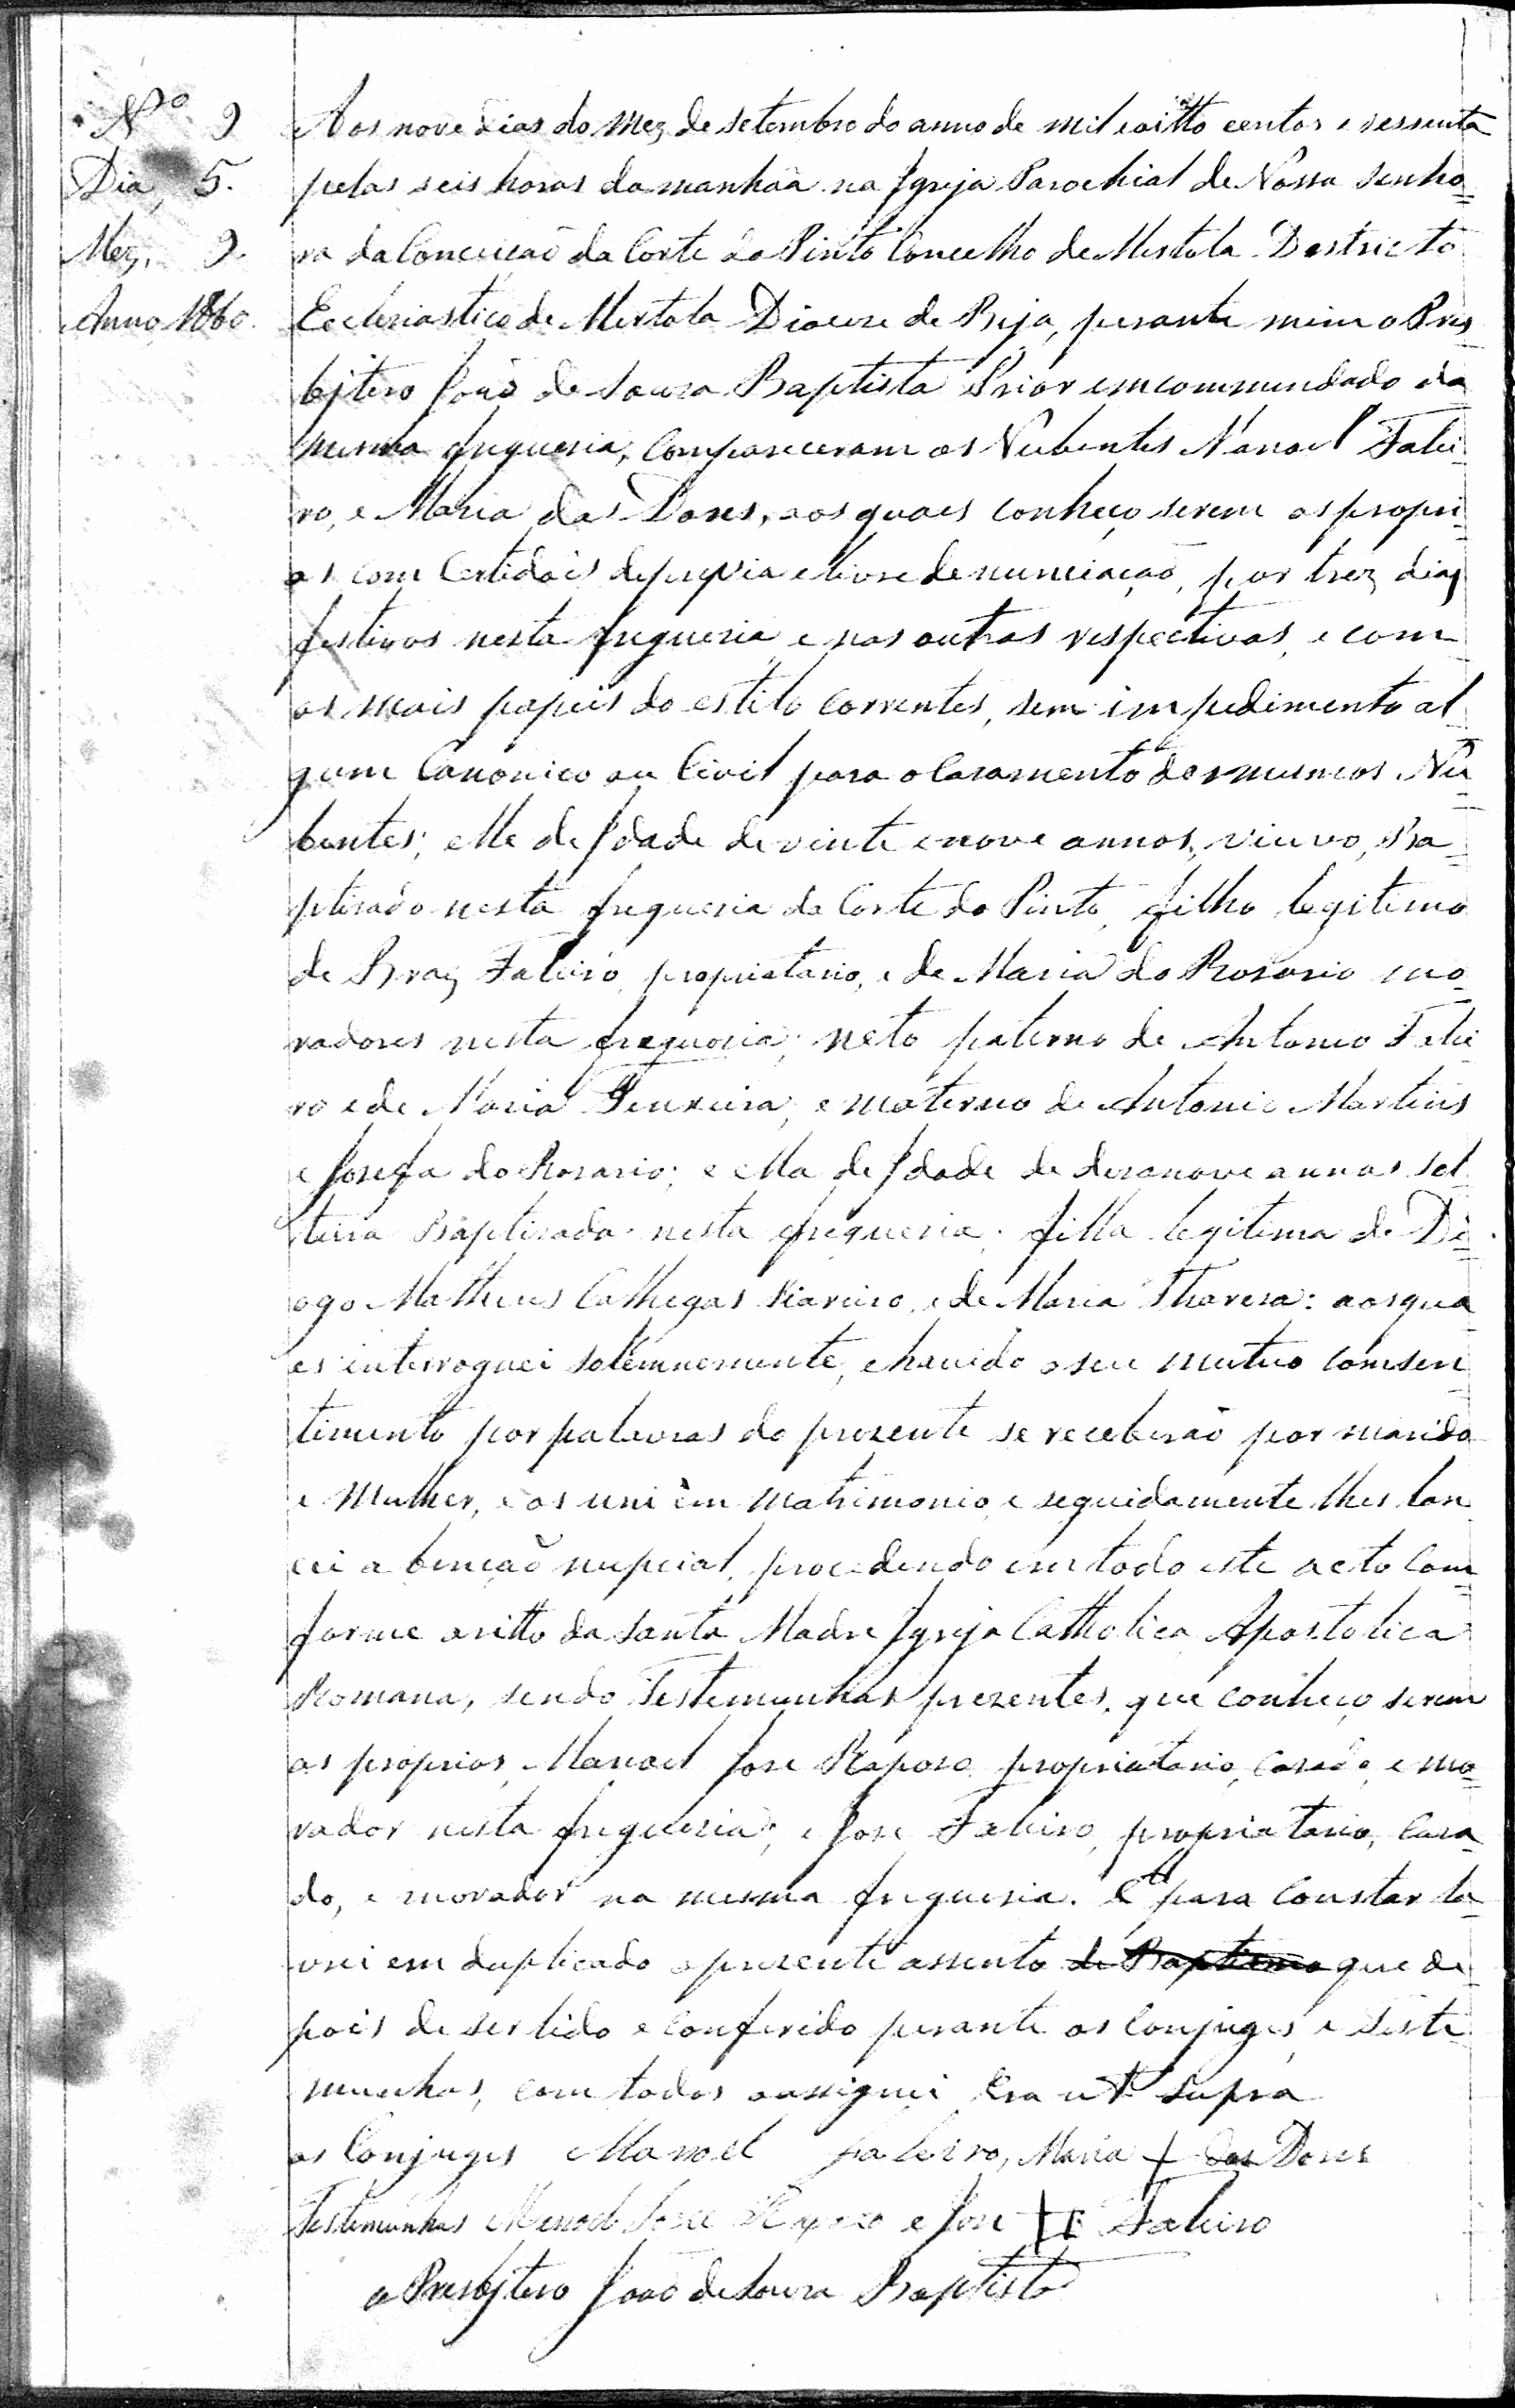 Nº 9
Dia, 5.
Mez, 9.
Anno 1860.
Aos nove dias do Mez de Setembro do anno de mil e oitto centos e sessenta
pelas seis horas da manhãa na Igreja Parochial de Nossa Senho=
ra da Conceição da Corte do Pinto Concelho de Mertola Destricto
Eccleriastico de Mertola Diocese de Beja, perante mim o Pres=
bjtero João de Souza Baptista Prior emcommendado da
mesma freguesia, Compareceram os Nubentes Manoel Falei=
ro, e Maria das Dores, aos quaes conheço serem os propri=
os com Certidois de e livre denunciação, por trez dias
festivos nesta freguesia e nas outras respectivas, e com
os mais papeis do estilo correntes, sem impedimento al=
gum Canonico ou Civil para o Casamento dos mesmos Nu=
bentes; elle de Idade de vinte e nove annos, viuvo, Ba=
ptisado nesta freguesia da Corte do Pinto, filho legitimo
de Braz Faleiro, proprietario, e de Maria do Rosario mo=
radores nesta freguesia; neto paterno de Antonio Falei
ro e de Maria Teixeira, e materno de Antonio Martins
e Josefa do Rosario; e ella de Idade de desanove annos sol
teira Baptisada nesta freguesia; filla legitima de Di=
ogo Matheus Cathegas e de Maria Thareza: aos qua
es interroguei solemnemente, e havido o seu mutuo comsen
timento por palavras do prezente se receberão por marido
e Mulher, e os uni em Matrimonio, e seguidamente lhes lan
cei a benção nupcial, procedendo em todo este acto Com=
forme o ritto da Santa Madre Igreja Catholica Apostolica
Romana, sendo Testemunhas prezentes, que conheço serem
os proprios, Manoel Jose Raposo, proprietario, Casado, e mo=
rador nesta freguesia; e Jose Faleiro, proprietario, Casa
do, e morador na mesma freguesia. E para Constar la=
vrei em duplicado o prezente assento de Baptismo que de=
pois de ser lido e conferido perante os Conjuges e Teste
munhas, com todos o assignei Era ut supra
os Conjuges Manoel faleiro, Maria + das Dores
Testemunhas Manoel Jose Rapozo e Jose + Faleiro
o Presbjtero João de Souza Baptista